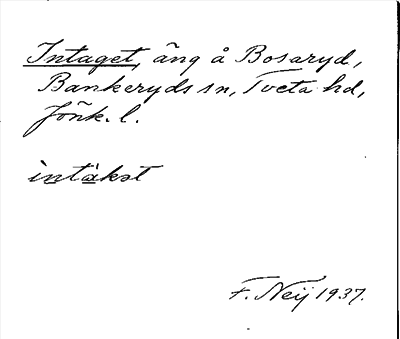 Intaget, äng å Bosaryd,
Bankeryds sn, Tveta hd,
Jönk. l.
intäkst
F. Neij 1937.